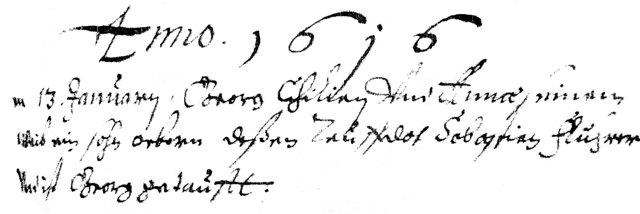 Anno. 1616
13. January. Georg Chilian Und Anna seinem
Weib ein sohn geborn deßen Tauffdot Sebastian
Und ist Georg getaufft.